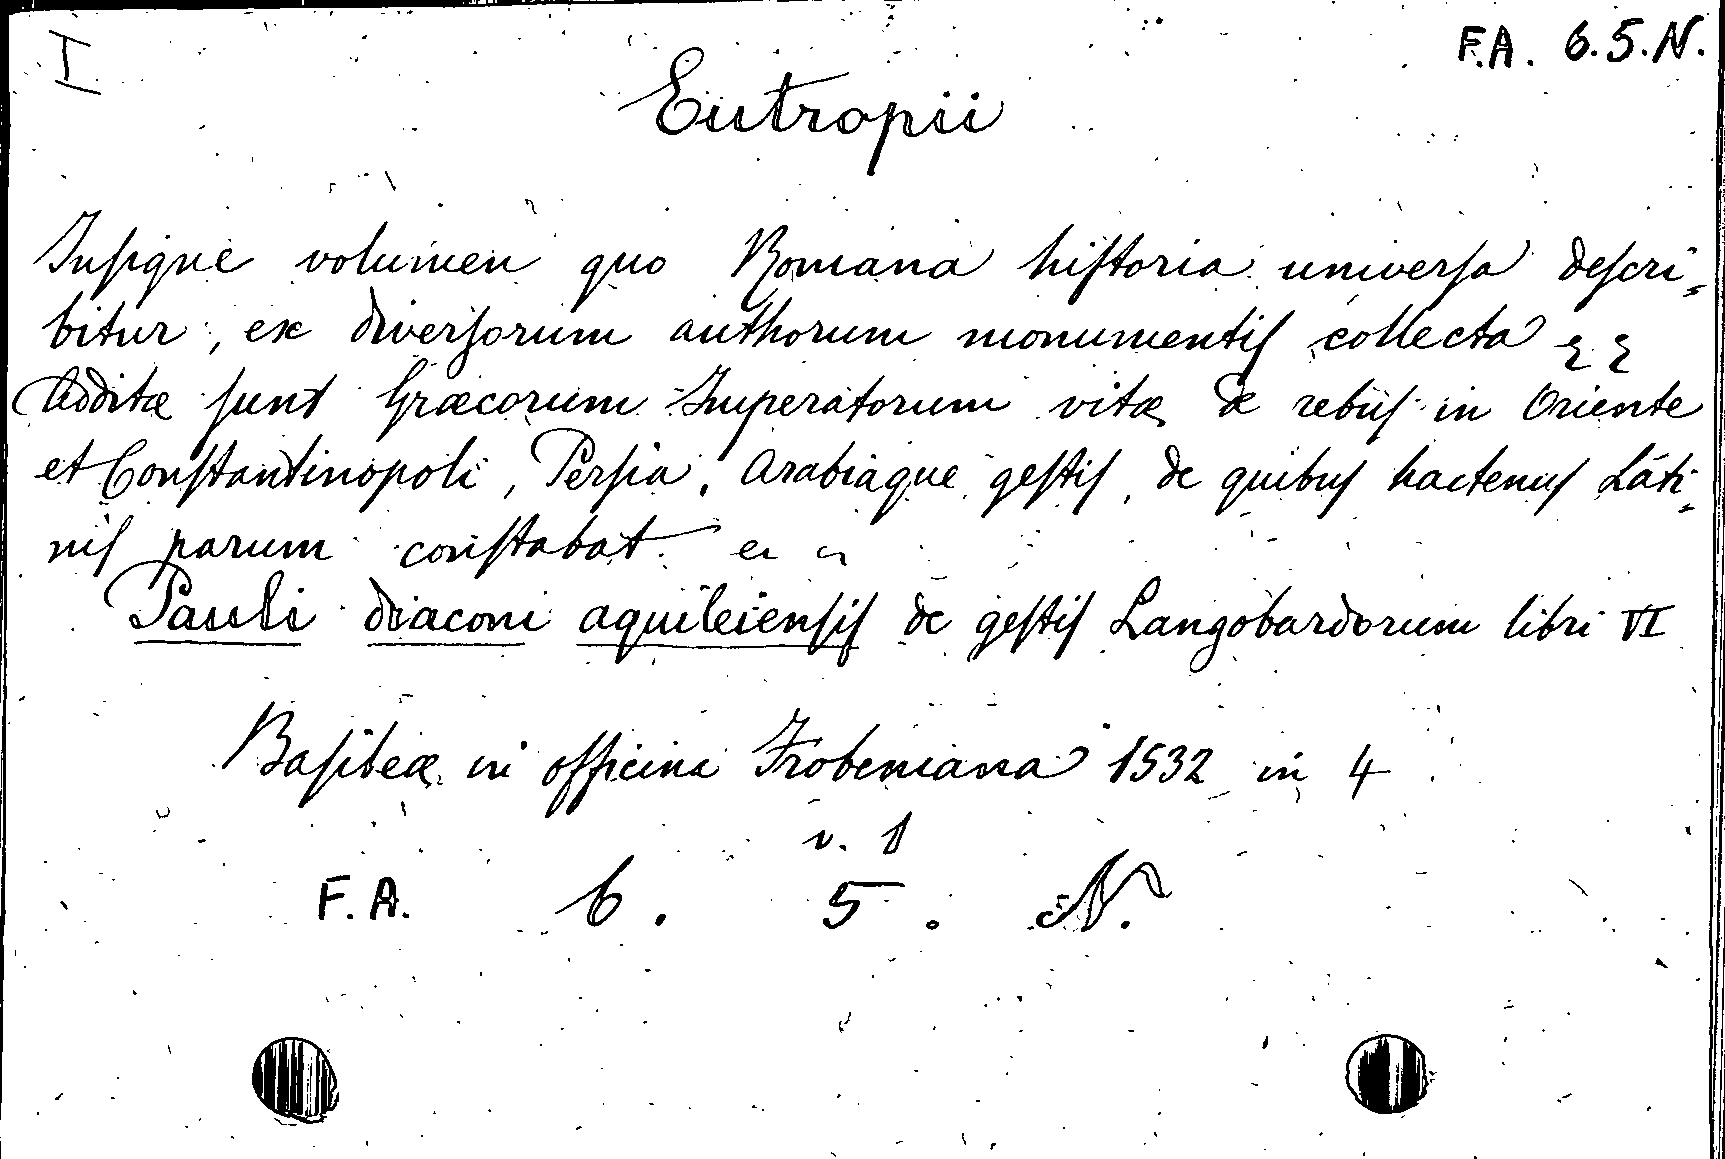 I
F.A. 6.5.N.
Eutropii
Inſigne volumen quo Romana hiſtoria univerſa deſcri⸗
bitur, ex diverſorum authorum monumentiſ collecta
Additæ ſunt Græcorum Imperatorum vitæ de rebuſ in Oriente
et Conſtantinopoli, Perſia, Arabiaque geſtiſ, de quibuſ hactenuſ Lati⸗
niſ parum conſtabat.
Pauli diaconi aquileienſiſ de geſtiſ Langobardorum libri VI
Baſileæ in officina Frobeniana 1532 in 4
v. 1
F.A. 6. 5. N.